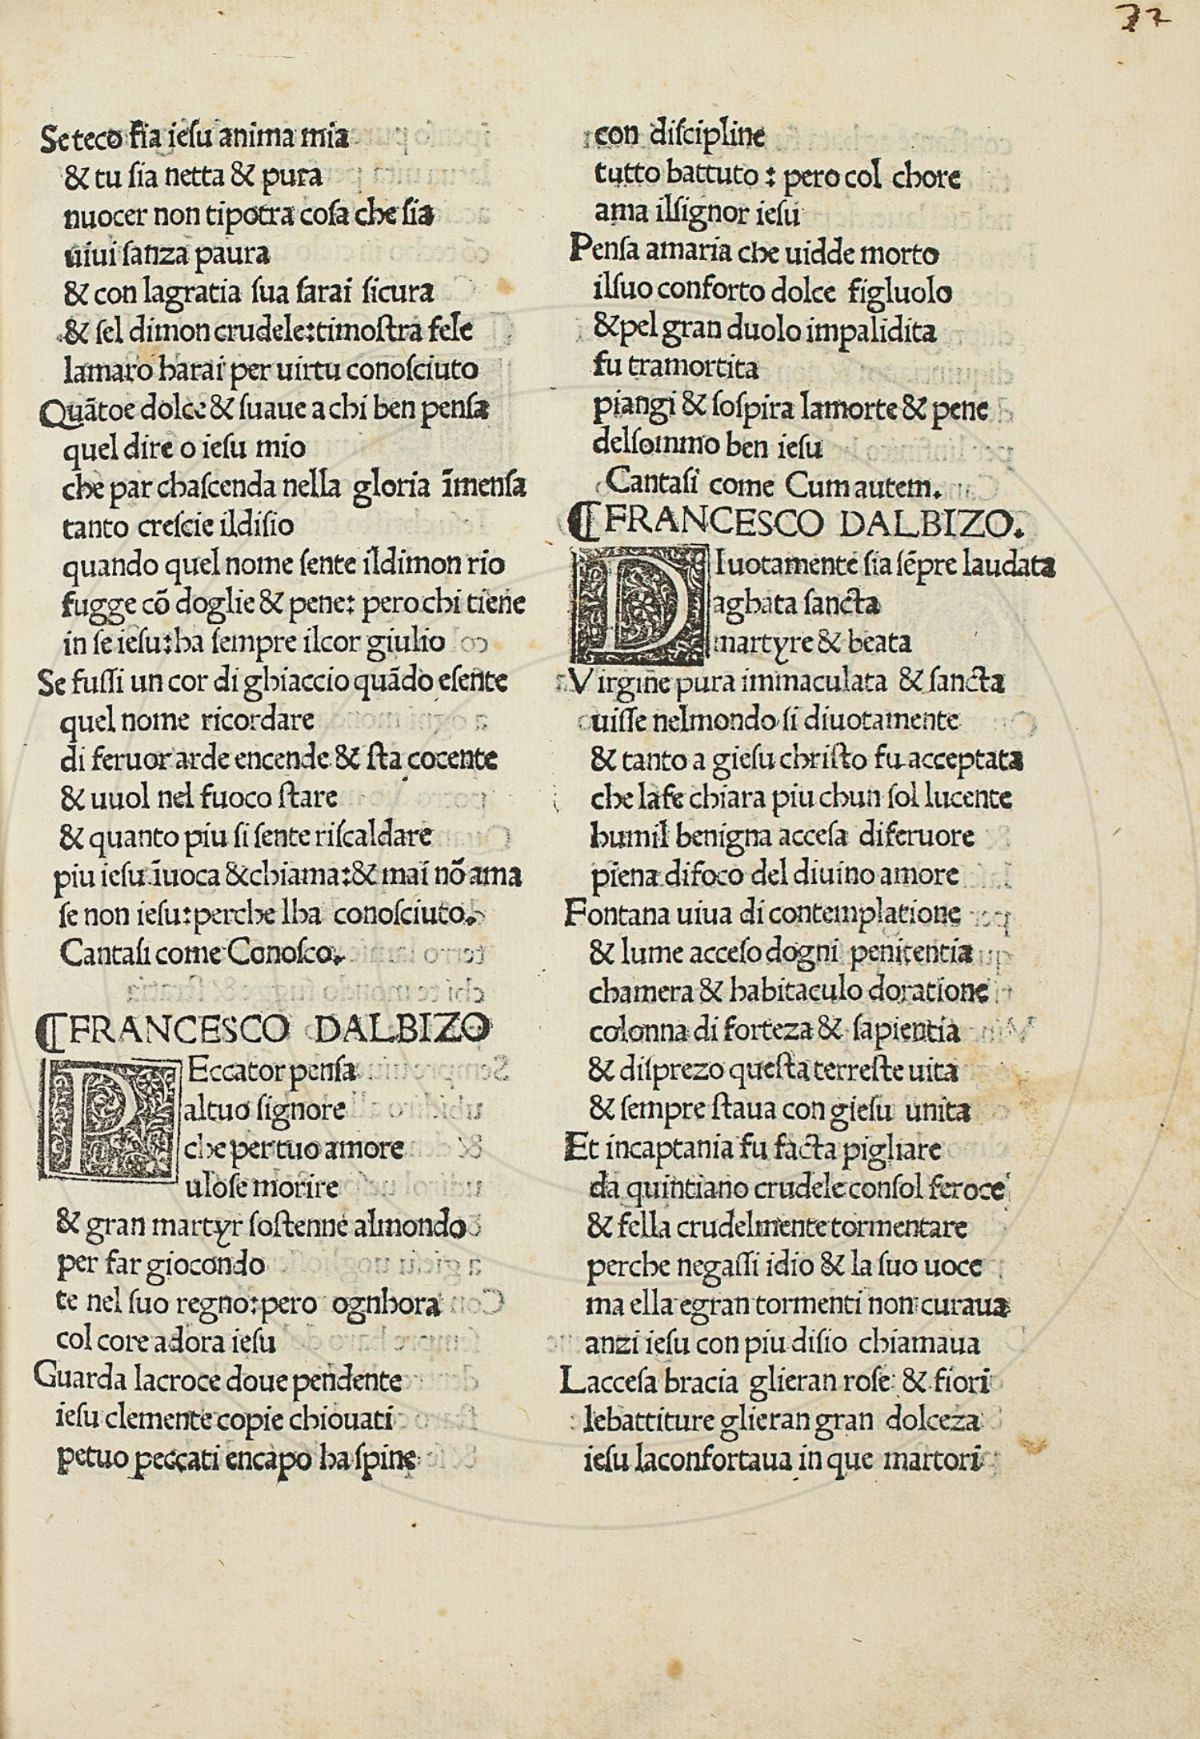 32
Se teco fia iesu anima mia
& tu sia netta & pura
nuocer non tipotra cosa che sia
uiui sanza paura
& con lagratia sua sarai sicura
& sel dimon crudele:timostra fele
lamaro harai per uirtu conosciuto
Quātoe dolce & suaue a chi ben pensa
quel dire o iesu mio
che par chascenda nella gloria īmensa
tanto crescie ildisio
quando quel nome sente ildimon rio
fugge cō doglie & pene: pero chi tiene
in se iesu:ha sempre ilcor giulio
Se fussi un cor di ghiaccio quādo esente
quel nome ricordare
di feruor arde encende & sta cocente
& uuol nel fuoco stare
& quanto piu si sente riscaldare
piu iesu īuoca &chiama:& mai nō ama
se non iesu:perche lha conosciuto.
Cantasi come Conosco.
¶FRANCESCO DALBIZO
PEccator pensa
altuo signore
che per tuo amore
uolse morire
& gran martyr sostenne almondo
per far giocondo
te nel suo regno:pero ognhora
col core adora iesu
Guarda lacroce doue pendente
iesu clemente copie chiouati
petuo peccati encapo ha spine
con discipline
tutto battuto : pero col chore
ama ilsignor iesu
Pensa amaria che uidde morto
ilsuo conforto dolce figluolo
&pel gran duolo impalidita
fu tramortita
piangi & sospira lamorte & pene
delsommo ben iesu
Cantasi come Cum autem.
¶FRANCESCO DALBIZO.
DIuotamente sia sēpre laudata
aghata sancta
martyre & beata
Virgine pura immaculata & sancta
uisse nelmondo si diuotamente
& tanto a giesu christo fu acceptata
che lafe chiara piu chun sol lucente
humil benigna accesa diferuore
piena difoco del diuino amore
Fontana uiua di contemplatione
& lume acceso dogni penitentia
chamera & habitaculo doratione
colonna di forteza & sapientia
& disprezo questa terreste uita
& sempre staua con giesu unita
Et incaptania fu facta pigliare
da quintiano crudele consol feroce
& fella crudelmente tormentare
perche negassi idio & la suo uoce
ma ella egran tormenti non curaua
anzi iesu con piu disio chiamaua
Laccesa bracia glieran rose & fiori
lebattiture glieran gran dolceza
iesu laconfortaua in que martori